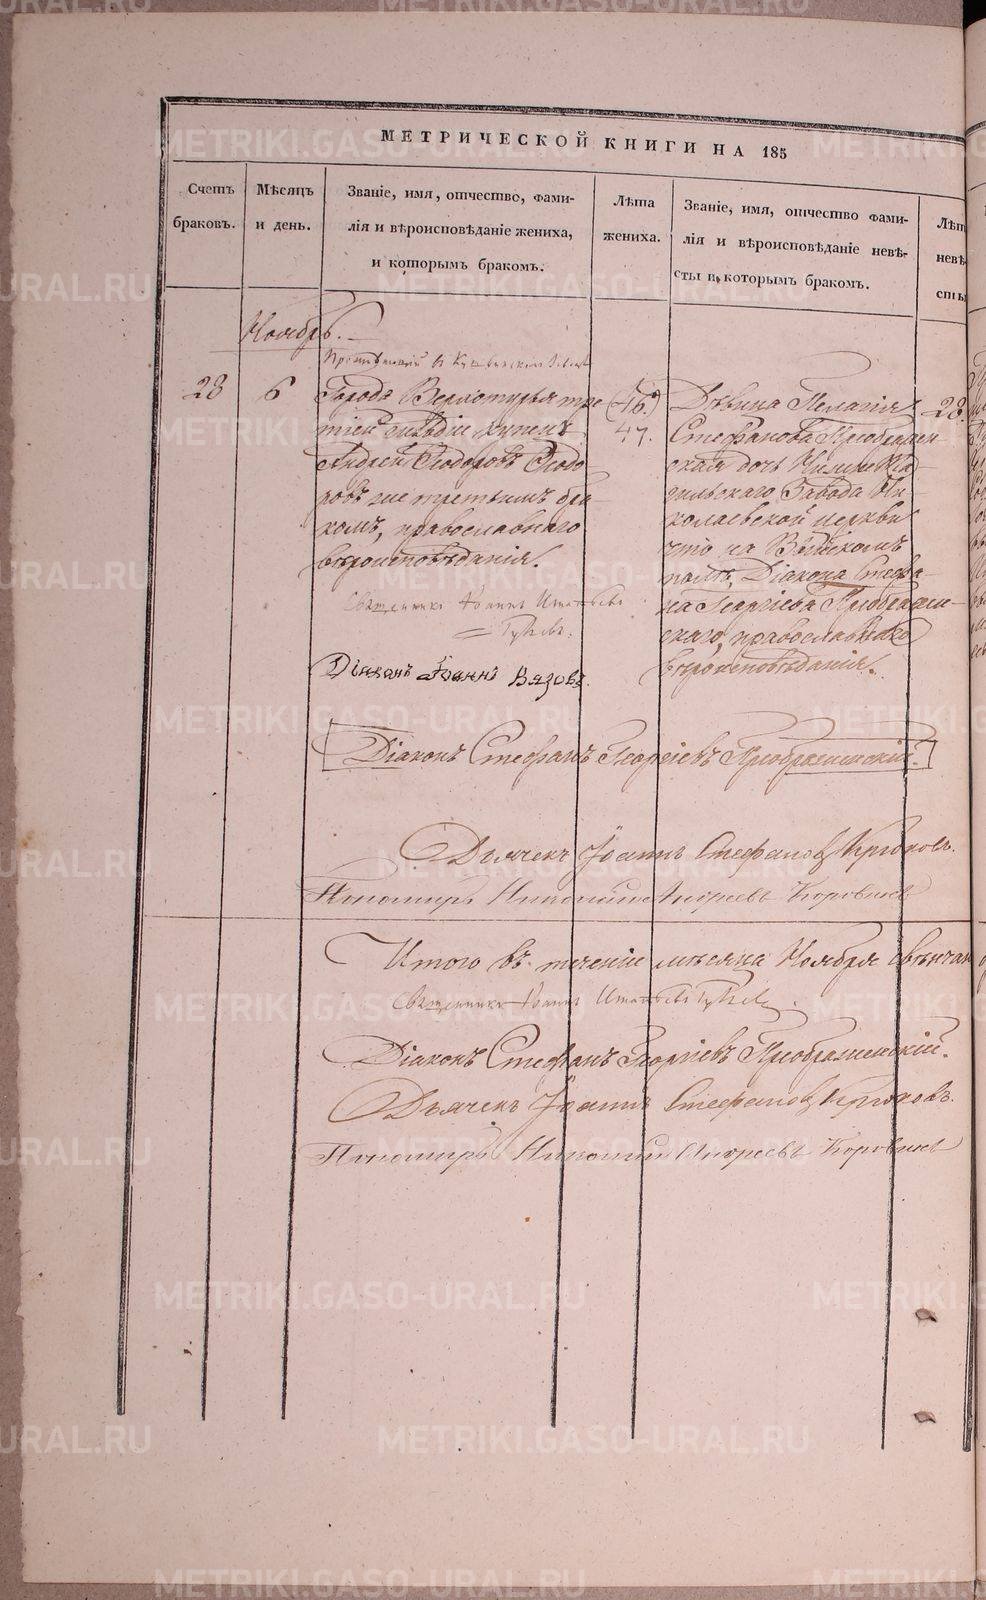 МЕТРИЧЕСКОЙ КНИГИ НА 185
Счетъ
браковъ.
Мѣсяцъ
и день.
Званіе, имя, отчество, фами-
лія и вѣроисповѣданіе жениха,
и которымъ бракомъ.
Лѣта
жениха.
Званіе, имя, отчество фами-
лія и вѣроисповѣданіе невѣ-
сты и, которымъ бракомъ.
Лѣт
невѣ-
сты
Ноябрь.
28
6
въ
Города Верхотурья тре
тіей гильдіи купецъ
Андрей Ѳеодоровъ Ѳеодо
ровъ же третьимъ бра
комъ, православнаго
вѣроисповѣданія.
Священникъ Іоаннъ Игнатьевъ
Діаконъ Іоаннъ Вязовъ.
(46.)
47.
Дѣвица Пелагія
Стефанова Преображен-
ская дочь Нижне Та-
гильскаго Завода Ни-
колаевской церкви
что на Выйскомъ
полѣ, Діакона Стефа-
на Георгіева Преображен-
скаго, православнаго
вѣроисповѣданія.
28.
Діаконъ Стефанъ Георгіевъ Преображенскій.
Дьячекъ Іоаннъ Стефановъ Крюковъ.
Пономарь Николай Андреевъ Коровинъ
Итого въ теченіи мѣсяца Ноября свѣнчан
Священникъ Іоаннъ Игнатьевъ
Діаконъ Стефанъ Георгіевъ Преображенскій.
Дьячекъ Іоаннъ Стефановъ Крюковъ.
Пономарь Николай Андреевъ Коровинъ
METRIKI.GASO-URAL.RU